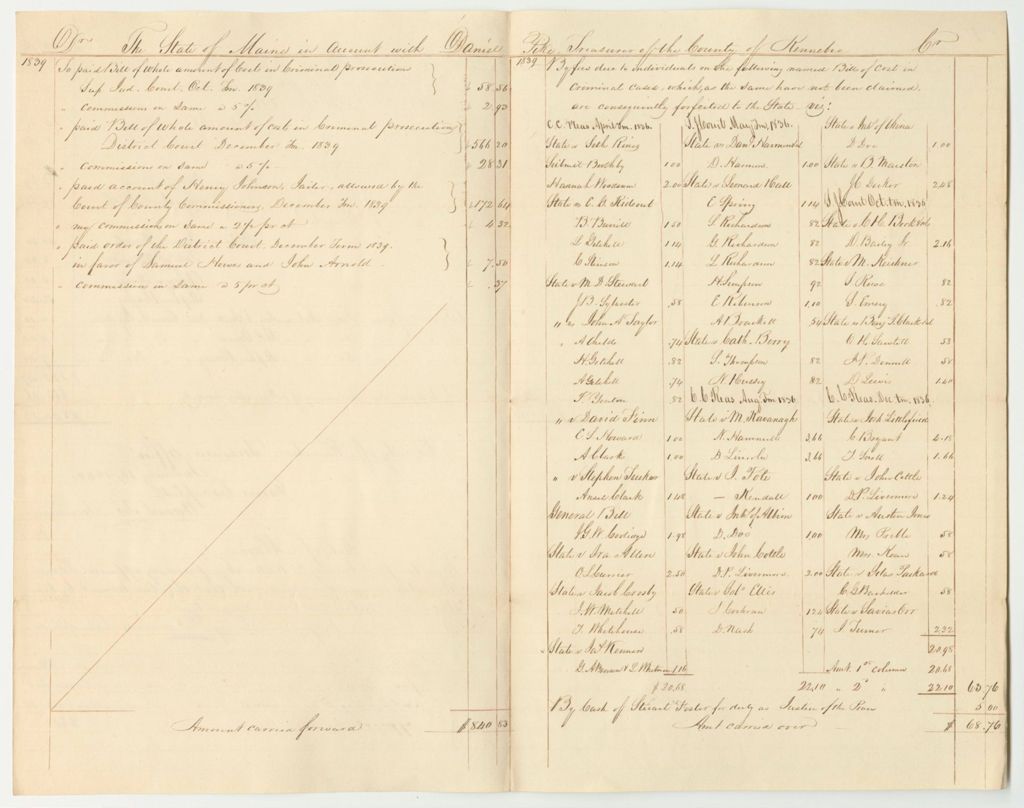 Dr The State of Maine in Account with Daniel Pike, Treasurer of the County of Kennebec Cr
1839
To paid Bill of whole amount of Cost in Criminal prosecutions
Sup Jud. Court. Oct. Tm. 1839 58.56
" Commissions on Same a 5 % 2.93
" paid Bill of whole amount of cost in Criminal prosecution
District Court December Tm. 1839 566 20
" Commission on same a 5 % 28 31
" paid account of Henry Johnson, Jailer, allowed by the
Court of County Commissioners, December Tm. 1839 172 64
" my commission on Same a 2½ pr ct 4 32
" paid order of the District Court. December Term 1839.
in favor of Samuel Howes and John Arnold 7.50
" Commission on Same a 5 pr ct .37
Amount carried forward $840 83
1839
By fees due to individuals on the following named Bills of Cost in
Criminal cases, which, as the same have not been claimed,
are consequently forfeited to the State viz:
C.C. Pleas. April Tm. 1836.
State v Seth Ring
Submit Bushby 1 00
Hannah Woodman 2.00
State v C. B. Rideout
B. Burrill 1.50
S Getchell 1.14
C Stinson 1.14
State v M. D. Steward
J. B. Sylvester .58
" v John N. Taylor
A Childs .74
H. Getchell .82
A Getchell .74
F. Yeaton .82
" v David Finn
C. S. Howard 1.00
A Clark 1.00
" v Stephen Tucker
Ansel Clark 1.48
General Bill
J. G. W. Coolidge 1.98
State v Ira Allen
O. L. Currier 2.50
State v Jacob Crosby
J. W. Mitchell 50
T. Whitehouse .58
State v Jas Kennon
G. A. Benson & L. Whitman 1 16
$20.68
S. J. Court May Tm, 1836.
State v Danl Hammond
D. Hanson 1.00
State v Leonard Hall
E Spring 1.14
S Richardson 82
G. Richardson 82
L Richardson 82
H Simpson 92
E Robinson 1.10
A. Brackett 54
State v Cath. Berry
S. Thompson 82
N. Hussey 82
C. C. Pleas. Aug. Tm 1836
State v M. Kavanagh
N. Hammond 3.66
D Lincoln 3.66
State v J. Tote
— Kendall 1.00
State v Inhb. of Albion
D. Doe 1.00
State v John Cottle
D. P. Livermore 2.00
State v Jobn Ellis
J Cochran 1.24
D. Nash 74
22.10
State v Inhb. of China
D Doe 1.00
State v B. Marston
J. C. Decker 2.48
S. J. Court Oct. tm. 1836
D. Bailey Jr. 2.16
S Rose 82
S. Emery 82
State v Benj. F. Clark et al
58
58
D Lewis 1.40
C. C. Pleas. Dec tm. 1836
State v Josh Littlefield
C Bryant 4.18
1.66
State v John Cottle
D. P. Livermore 1.24
State v Austin Jones
Moses Preble 58
58
State v Silas Packard
C. G. Bachelder 58
State v Savias Orr
J. Turner 2.22
20.98
Amt. 1st column 20.68
" 2d " 22.10 63.76
By Cash of Stuart Foster for duty as Justice of the Peace 5 00
Amt carried over $ 68.76